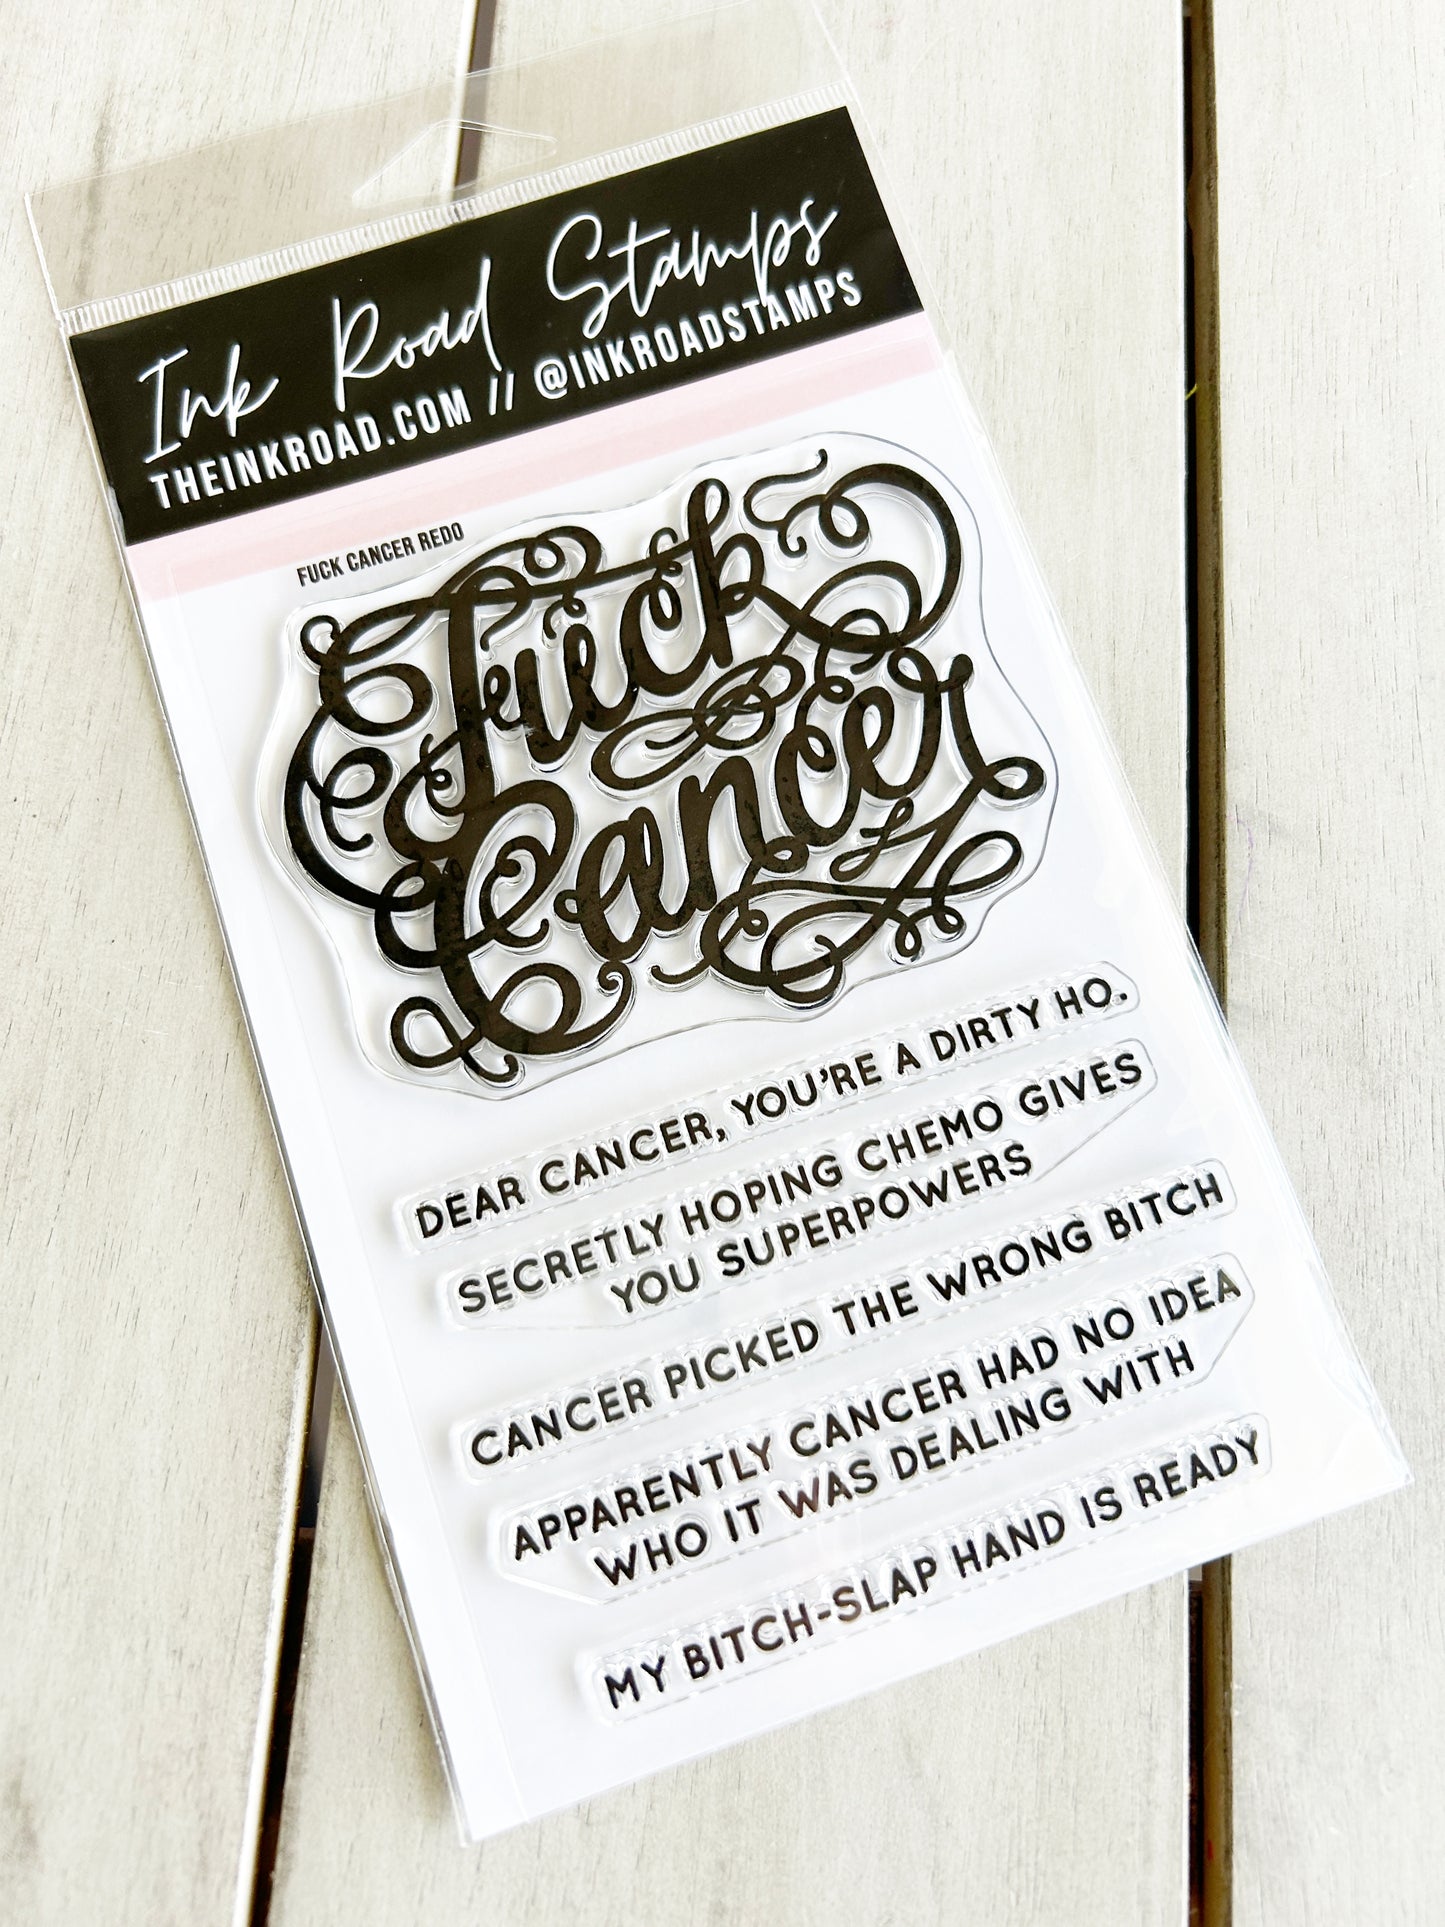 Ink Road Stamps
THEINKROAD.COM // @INKROADSTAMPS
FUCK CANCER REDO
Fuck
Cancer
DEAR CANCER, YOU'RE A DIRTY HO.
SECRETLY HOPING CHEMO GIVES
YOU SUPERPOWERS
CANCER PICKED THE WRONG BITCH
APPARENTLY CANCER HAD NO IDEA
WHO IT WAS DEALING WITH
MY BITCH-SLAP HAND IS READY